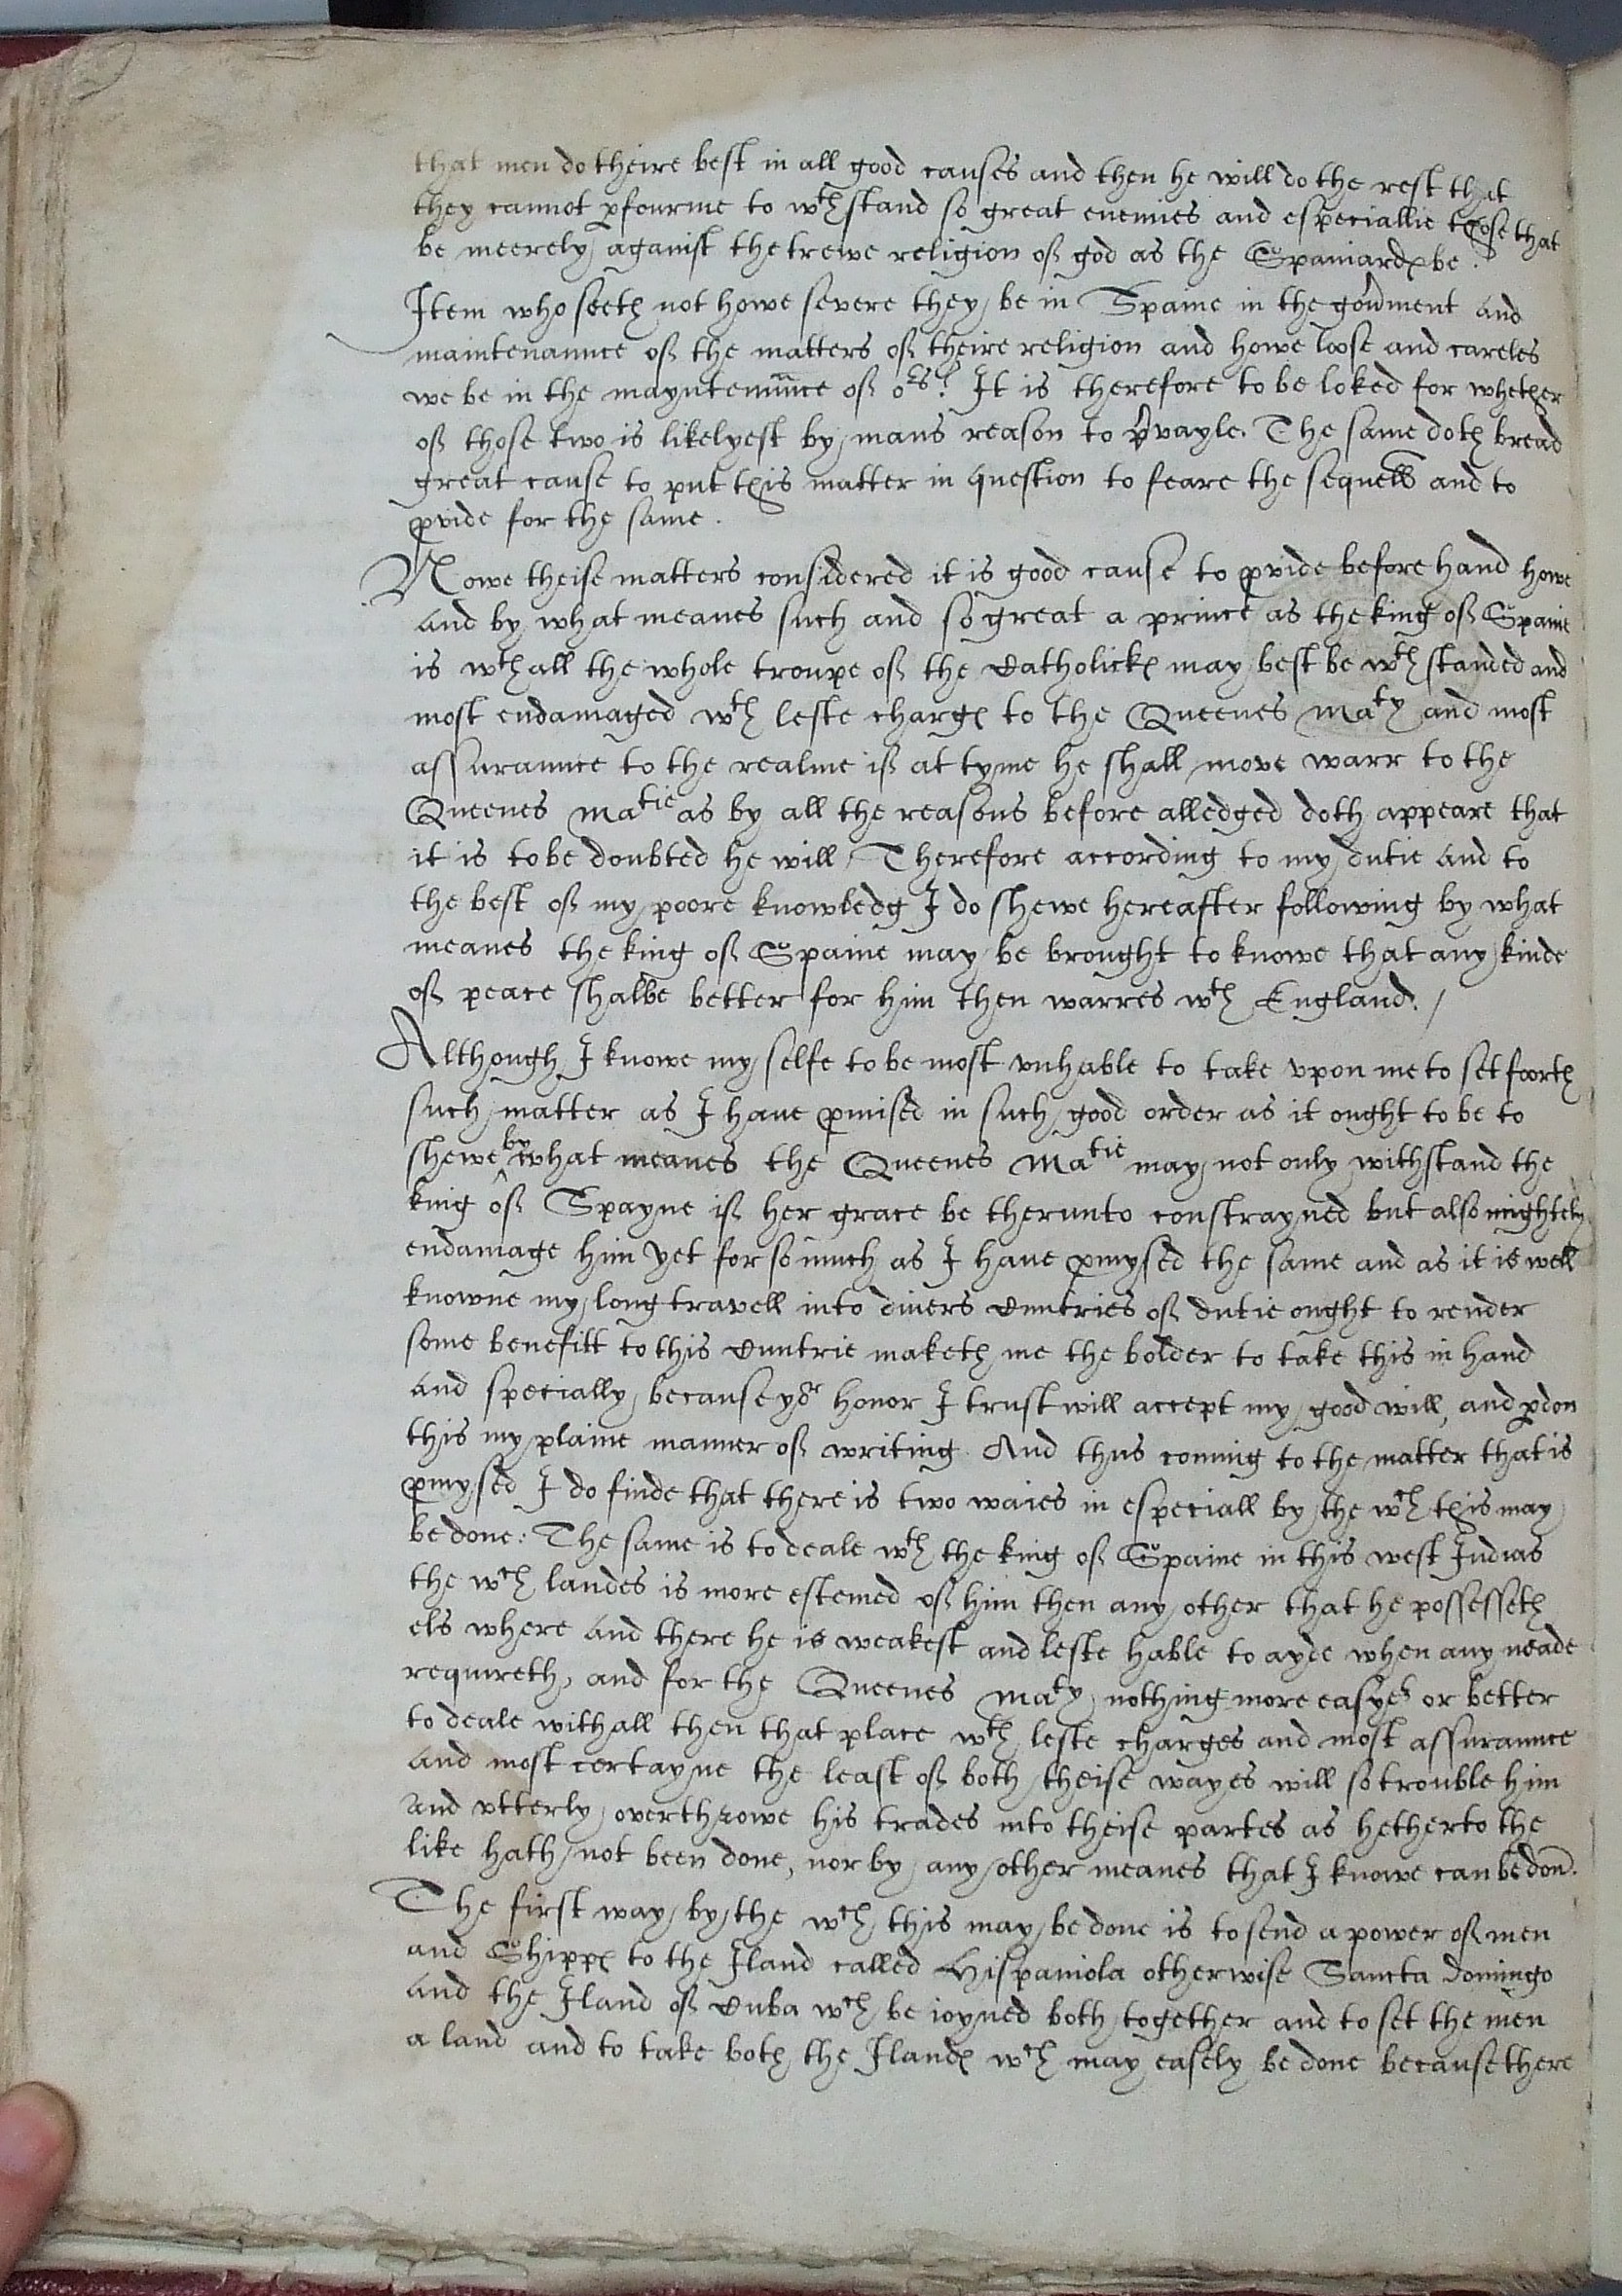 that men do theire best in all good causes and then he will do the rest that
they cannot pfourme to wth stand so great enemies and especiallie those that
be meerely against the trewe religion of god as the Spaniards be.
Item who seeth not howe severe they be in Spaine in the gou̅ment and
maintenaunce of the matters of theire religion and howe loose and careles
we be in the mayntenu̅nce of ors? It is therefore to be loked for whether
of those two is likelyest by mans reason to pvayle. The same doth bread
great cause to put this matter in question to feare the sequell and to
pvide for the same.
Nowe theise matters considered it is good cause to pvide before hand howe
and by what meanes such and so great a prince as the king of Spaine
is wth all the whole troupe of the Catholickes may best be wth standed and
most endamaged wth leste charges to the Queenes Maty and most
assuraunce to the realme if at tyme he shall move warr to the
Queenes Matie as by all the reasons before alledged doth appeare that
it is to be doubted he will, Therefore according to my dutie and to
the best of my poore knowledg I do shewe hereafter following by what
meanes the king of Spaine may be brought to knowe that any kinde
of peace shalbe better for him then warres wth England. /
Although I knowe my selfe to be most vnhable to take vpon me to set foorth
such matter as I haue pmised in such good order as it ought to be to
shewe by what meanes the Queenes Matie may not only withstand the
king of Spayne if her grace be therunto constrayned but also mightely
endamage him yet for so much as I haue pmysed the same and as it is well
knowne my long travell into diuers Cuntries of dutie ought to render
some benefitt to this Cuntrie maketh me the bolder to take this in hand
and specially because yor honor I trust will accept my good will, and pdon
this my plaine manner of writing. And thus coming to the matter that is
pmysed I do finde that there is two waies in especiall by the wch this may
be done: The same is to deale wth the king of Spaine in this west Indias
the wch landes is more estemed of him then any other that he possesseth
els where and there he is weakest and leste hable to ayde when any neade
requireth, and for the Queenes Maty nothing more easyer or better
to deale withall then that place wth leste charges and most assuraunce
and most certayne the least of both theise wayes will so trouble him
and vtterly overthrowe his trades into theise partes as hetherto the
like hath not been done, nor by any other meanes that I knowe can be don̅.
The first way by the wch this may be done is to send a power of men
and Shippes to the Iland called Hispaniola otherwise Sancta Domingo
and the Iland of Cuba wch be ioyned both together and to set the men
a land and to take both the Ilandes wch may easely be done because there